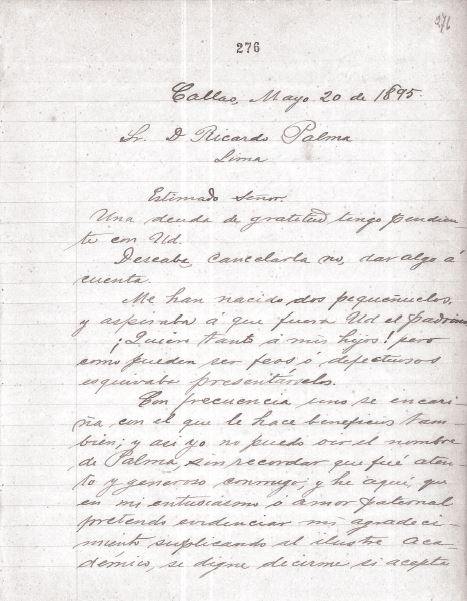 276
276
Callao, Mayo 20 de 1895.
Sr. D Ricardo Palma
Lima
Estimado Señor.
Una deuda de gratitud tengo pendien-
te con Ud.
Deseaba, cancelarla no, dar algo á
cuenta.
Me han nacido dos pequeñuelos,
y aspiraba á que fuera Ud el padrino
¡Quiero tanto á mis hijos! pero
como pueden ser feos ó defectuosos
esquivaba presentárselos.
Con frecuencia uno se encari-
ña, con el que le hace beneficios tam-
bién; y así yo no puedo oir el nombre
de Palma, sin recordar que fué aten-
to y generoso conmigo; y he aquí, que
en mi entusiasmo ó amor paternal
pretendo evidenciar mi agradeci-
miento suplicando al ilustre aca-
démico, se digne decirme si acepta